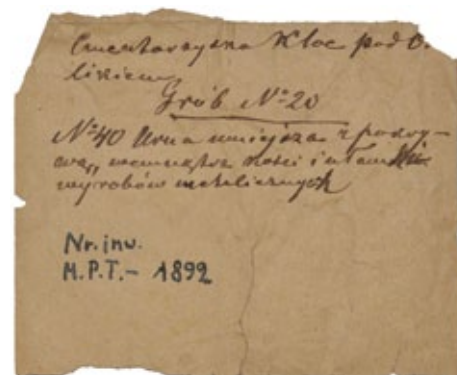 Cmentarzyska Kloc pod B.
likiem
Grób Nº20
Nº40 Urna mniejsza z pokry-
wą, wewnątrz kości i ułamki
wyrobów metalicznych
Nr. inw.
M.P.T. - 1892